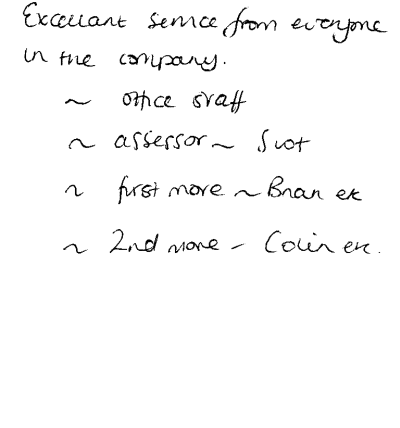 Excellant service from everyone
in the company.
~ office staff
~ assessor ~ Scot
~ first move ~ Brian etc
~ 2nd move - Colin etc.